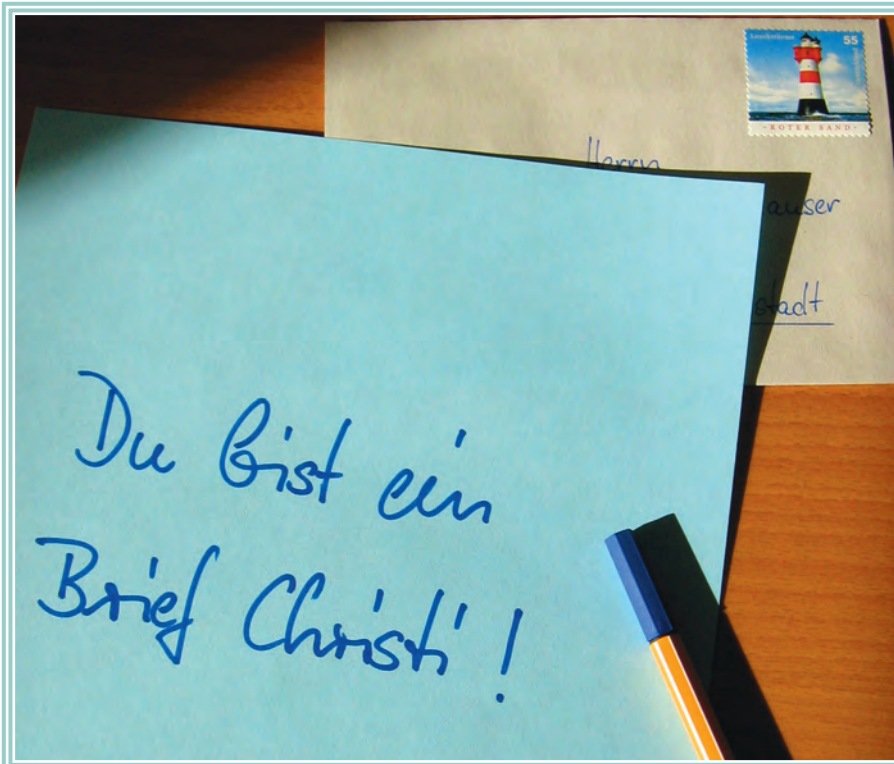 55
ROTER SAND
Herrn
auser
stadt
Du bist ein
Brief Christi!